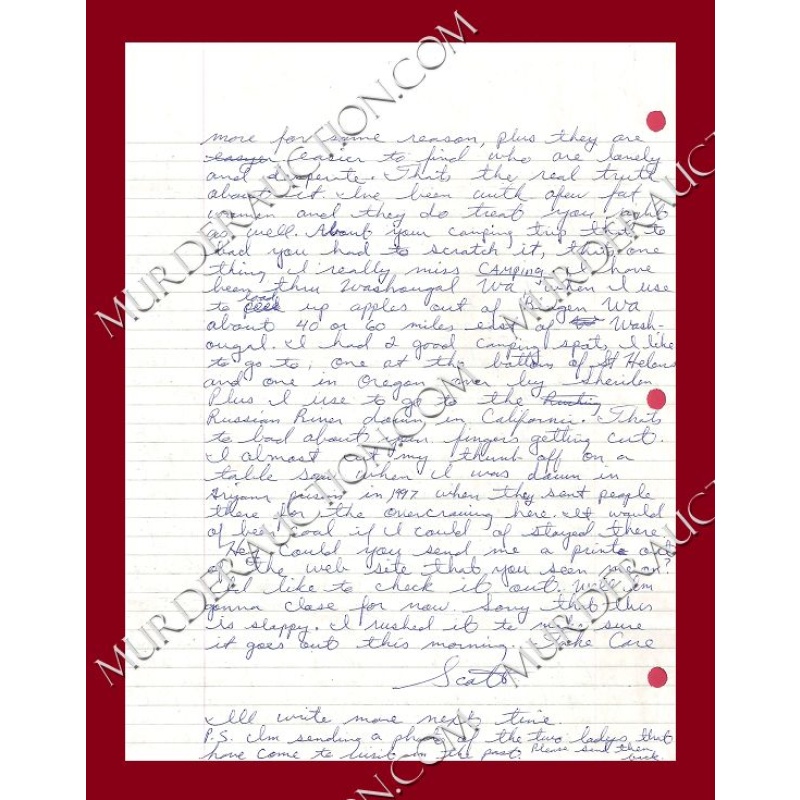 more for some reason, plus they are
easyer (easier to find who are lonely
and desperite. Thats the real truth
about it. Ive been with afew fat
women and they do treat you right
as well. About your camping trip that to
bad you had to scratch it, thats one
thing I really miss CAMPING. I have
been thru Washougal Wa when I use
to load up apples out of Bingen Wa
about 40 or 60 miles east of Wash-
ougal. I had 2 good camping spots, I like
to go to, one at the bottom of St Helens
and one in Oregon over by Sheriden
Plus I use to go to the
Russian River down in California. Thats
to bad about your fingers getting cut.
I almost cut my thumb off on a
table saw when I was down in
Arizona prison in 1997 when they sent people
there for the overcrowing here. It would
of been cool if I could of stayed there
Hey Could you send me a printe out
of the web site that you seen me on?
I'd like to check it out. Well Im
gonna close for now. Sorry that this
is sloppy. I rushed it to make sure
it goes out this morning. Take Care
Scott
Ill write more next time.
P.S. Im sending a photo of the two ladys that
have come to visit in the past. Please send them
back.
MURDERAUCTION.COM
MURDERAUCTION.COM
MURDERAUCTION.COM
MURDERAUCTION.COM